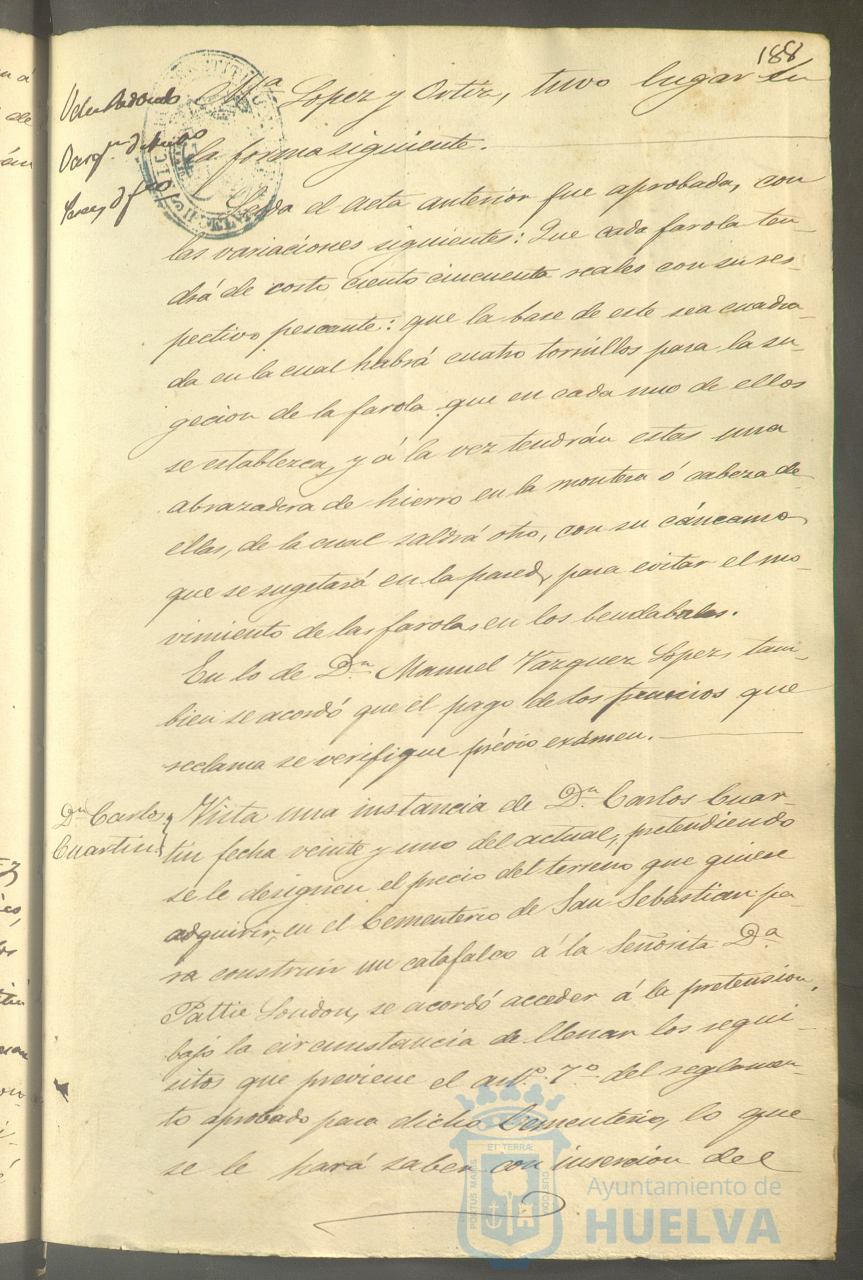 188
Lopez y Ortiz, tuvo lugar en
la forma siguiente.
Leida el acta anterior fue aprobada, con
las variaciones siguientes: Que cada farola ten-
drá de costo ciento cincuenta reales con su res-
pectivo pescante: que la base de este sea cuadra-
da en la cual habrá cuatro tornillos para la su-
gecion de la farola que en cada uno de ellos
se establezca, y á la vez tendrán estas una
abrazadera de hierro en la montera ó cabeza de
ellas, de la cual saldrá otro, con su cáncamo
que se sugetará en la pared, para evitar el mo-
vimiento de las farolas en los bendabales.
En lo de Dn. Manuel Vazquez Lopez, tam-
bien se acordó que el pago de los que
reclama se verifique prévio exámen.
Dn. Carlos
Cuartin
Vista una instancia de Dn. Carlos Cuar-
tin fecha veinte y uno del actual, pretendiendo
se le designen el precio del terreno que quiere
adquirir, en el Cementerio de San Sebastian pa-
ra construir un catafalco á la Señorita Da.
Pattie London, se acordó acceder á la pretension,
bajo la circunstancia de llenar los requi-
sitos que previene el artº. 7º. del reglamen-
to aprobado para dicho Cementerio, lo que
se le hará saber con insercion del
PORTUS MARIS ET TERRÆ CUSTODIA
Ayuntamiento de
HUELVA